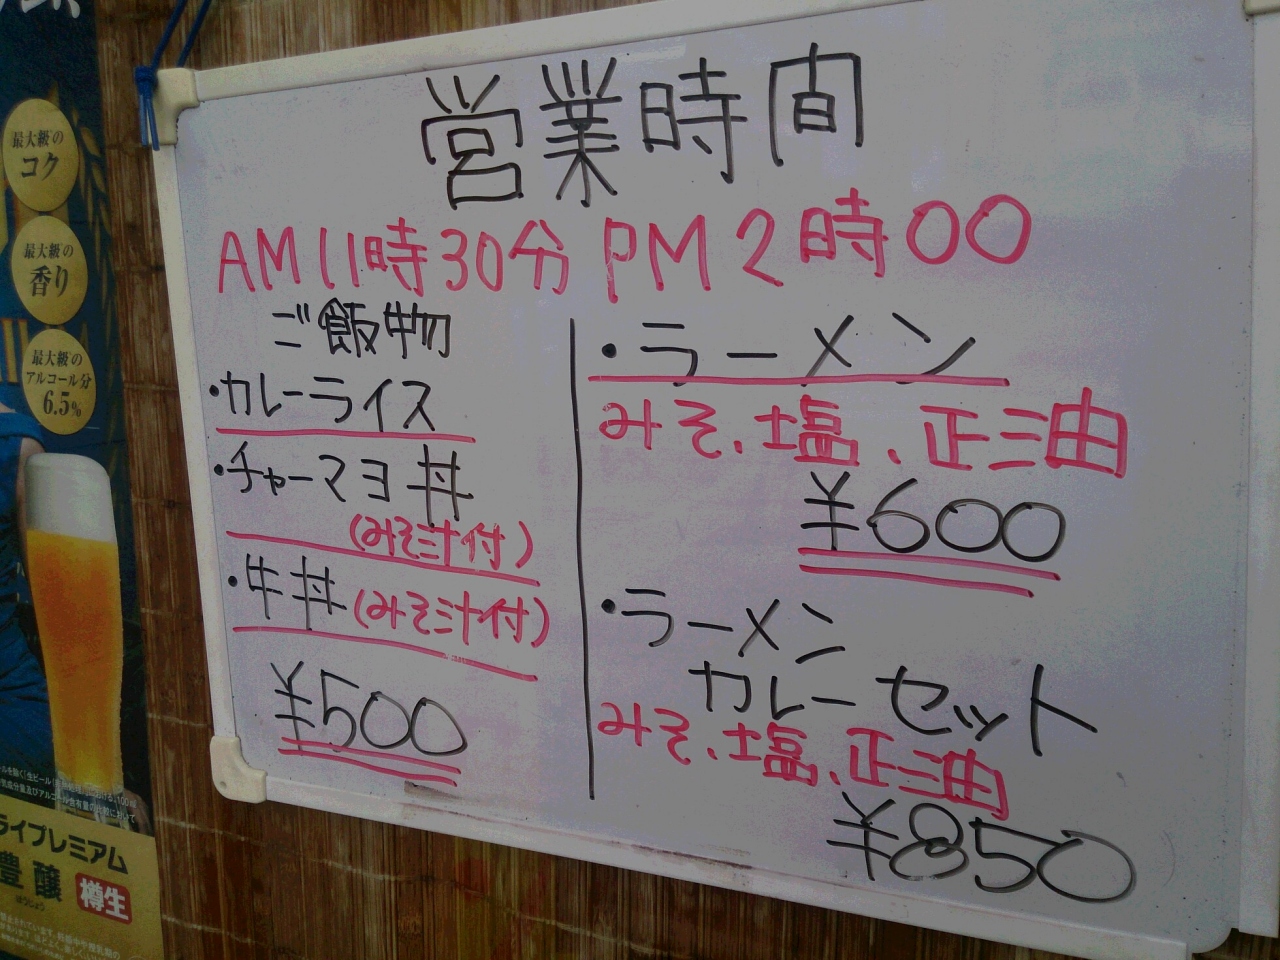 営業時間
AM11時30分 PM2時00
ご飯物
・カレーライス
・チャーマヨ丼
(みそ汁付)
・牛丼(みそ汁付)
¥500
・ラーメン
みそ、塩、正三油
¥600
・ラーメン
カレーセット
みそ、塩、正三油
¥850
最大級の
コク
最大級の
香り
最大級の
アルコール分
6.5%
ライプレミアム
豊醸
ほうじょう
樽生